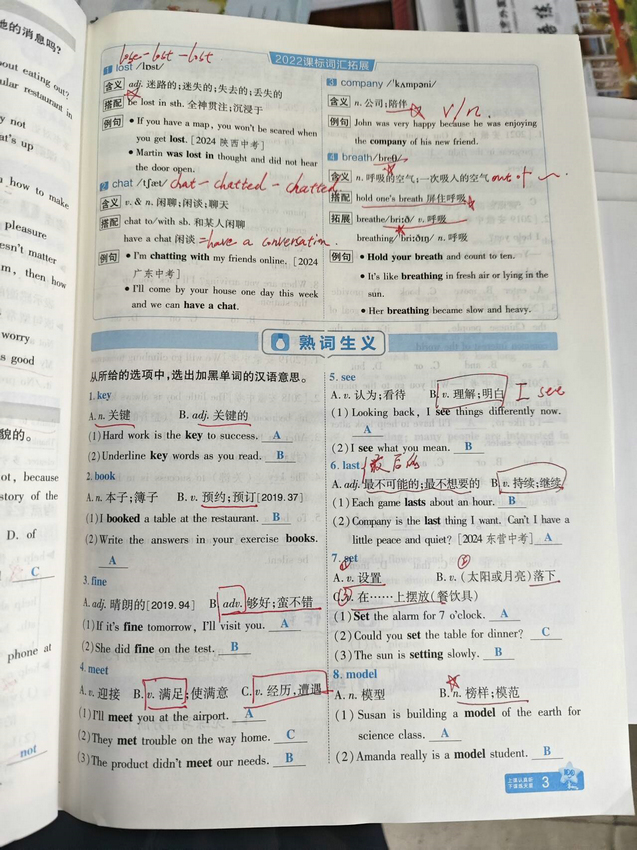 他的消息吗?
bout eating out?
ular restaurant in
y not
at's up
how to make
pleasure
esn't matter
m, then how
worry
s good
貌的。
ot, because
story of the
D. of
C
phone at
not
2022课标词汇拓展
lose-lost-lost
1 lost /lɒst/
含义 adj. 迷路的;迷失的;失去的;丢失的
搭配 be lost in sth. 全神贯注;沉浸于
例句 ● If you have a map, you won't be scared when
you get lost. [2024 陕西中考]
● Martin was lost in thought and did not hear
the door open.
2 chat /tʃæt/ chat-chatted-chatted
含义 v. & n. 闲聊;闲谈;聊天
搭配 chat to/with sb. 和某人闲聊
have a chat 闲谈 = have a conversation.
例句 ● I'm chatting with my friends online. [2024
广东中考]
● I'll come by your house one day this week
and we can have a chat.
3 company /ˈkʌmpəni/
含义 n. 公司;陪伴 v/n.
例句 John was very happy because he was enjoying
the company of his new friend.
4 breath /breθ/
含义 n. 呼吸的空气;一次吸入的空气 out of
搭配 hold one's breath 屏住呼吸
拓展 breathe/briːð/ v. 呼吸
breathing/ˈbriːðɪŋ/ n. 呼吸
例句 ● Hold your breath and count to ten.
● It's like breathing in fresh air or lying in the
sun.
● Her breathing became slow and heavy.
熟词生义
从所给的选项中,选出加黑单词的汉语意思。
1. key
A. n. 关键 B. adj. 关键的
(1)Hard work is the key to success. A
(2)Underline key words as you read. B
2. book
A. n. 本子;簿子 B. v. 预约;预订[2019.37]
(1)I booked a table at the restaurant. B
(2)Write the answers in your exercise books.
A
3. fine
A. adj. 晴朗的[2019.94] B. adv. 够好;蛮不错
(1)If it's fine tomorrow, I'll visit you. A
(2)She did fine on the test. B
4. meet
A. v. 迎接 B. v. 满足;使满意 C. v. 经历,遭遇
(1)I'll meet you at the airport. A
(2)They met trouble on the way home. C
(3)The product didn't meet our needs. B
5. see
A. v. 认为;看待 B. v. 理解;明白 I see
(1)Looking back, I see things differently now.
A
(2)I see what you mean. B
6. last 最后的
A. adj. 最不可能的;最不想要的 B. v. 持续;继续
(1)Each game lasts about an hour. B
(2)Company is the last thing I want. Can't I have a
little peace and quiet? [2024 东营中考] A
7. set
A. v. 设置 B. v. (太阳或月亮)落下
C. v. 在……上摆放(餐饮具)
(1)Set the alarm for 7 o'clock. A
(2)Could you set the table for dinner? C
(3)The sun is setting slowly. B
8. model
A. n. 模型 B. n. 榜样;模范
(1) Susan is building a model of the earth for
science class. A
(2) Amanda really is a model student. B
3